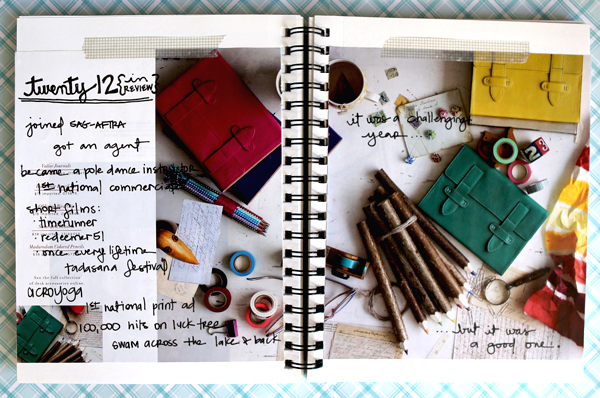 twenty 12 {in REVIEW}
joined SAG-AFTRA
got an agent
became a pole dance instructor
1st national commercial
short films:
timerunner
redeemer51
once every lifetime
tadasana festival
See the full collection
of desk accessories online
acroyoga
1st national print ad
100,000 hits on luck tree
swam across the lake & back
it was a challenging
year....
....but it was
a good one.